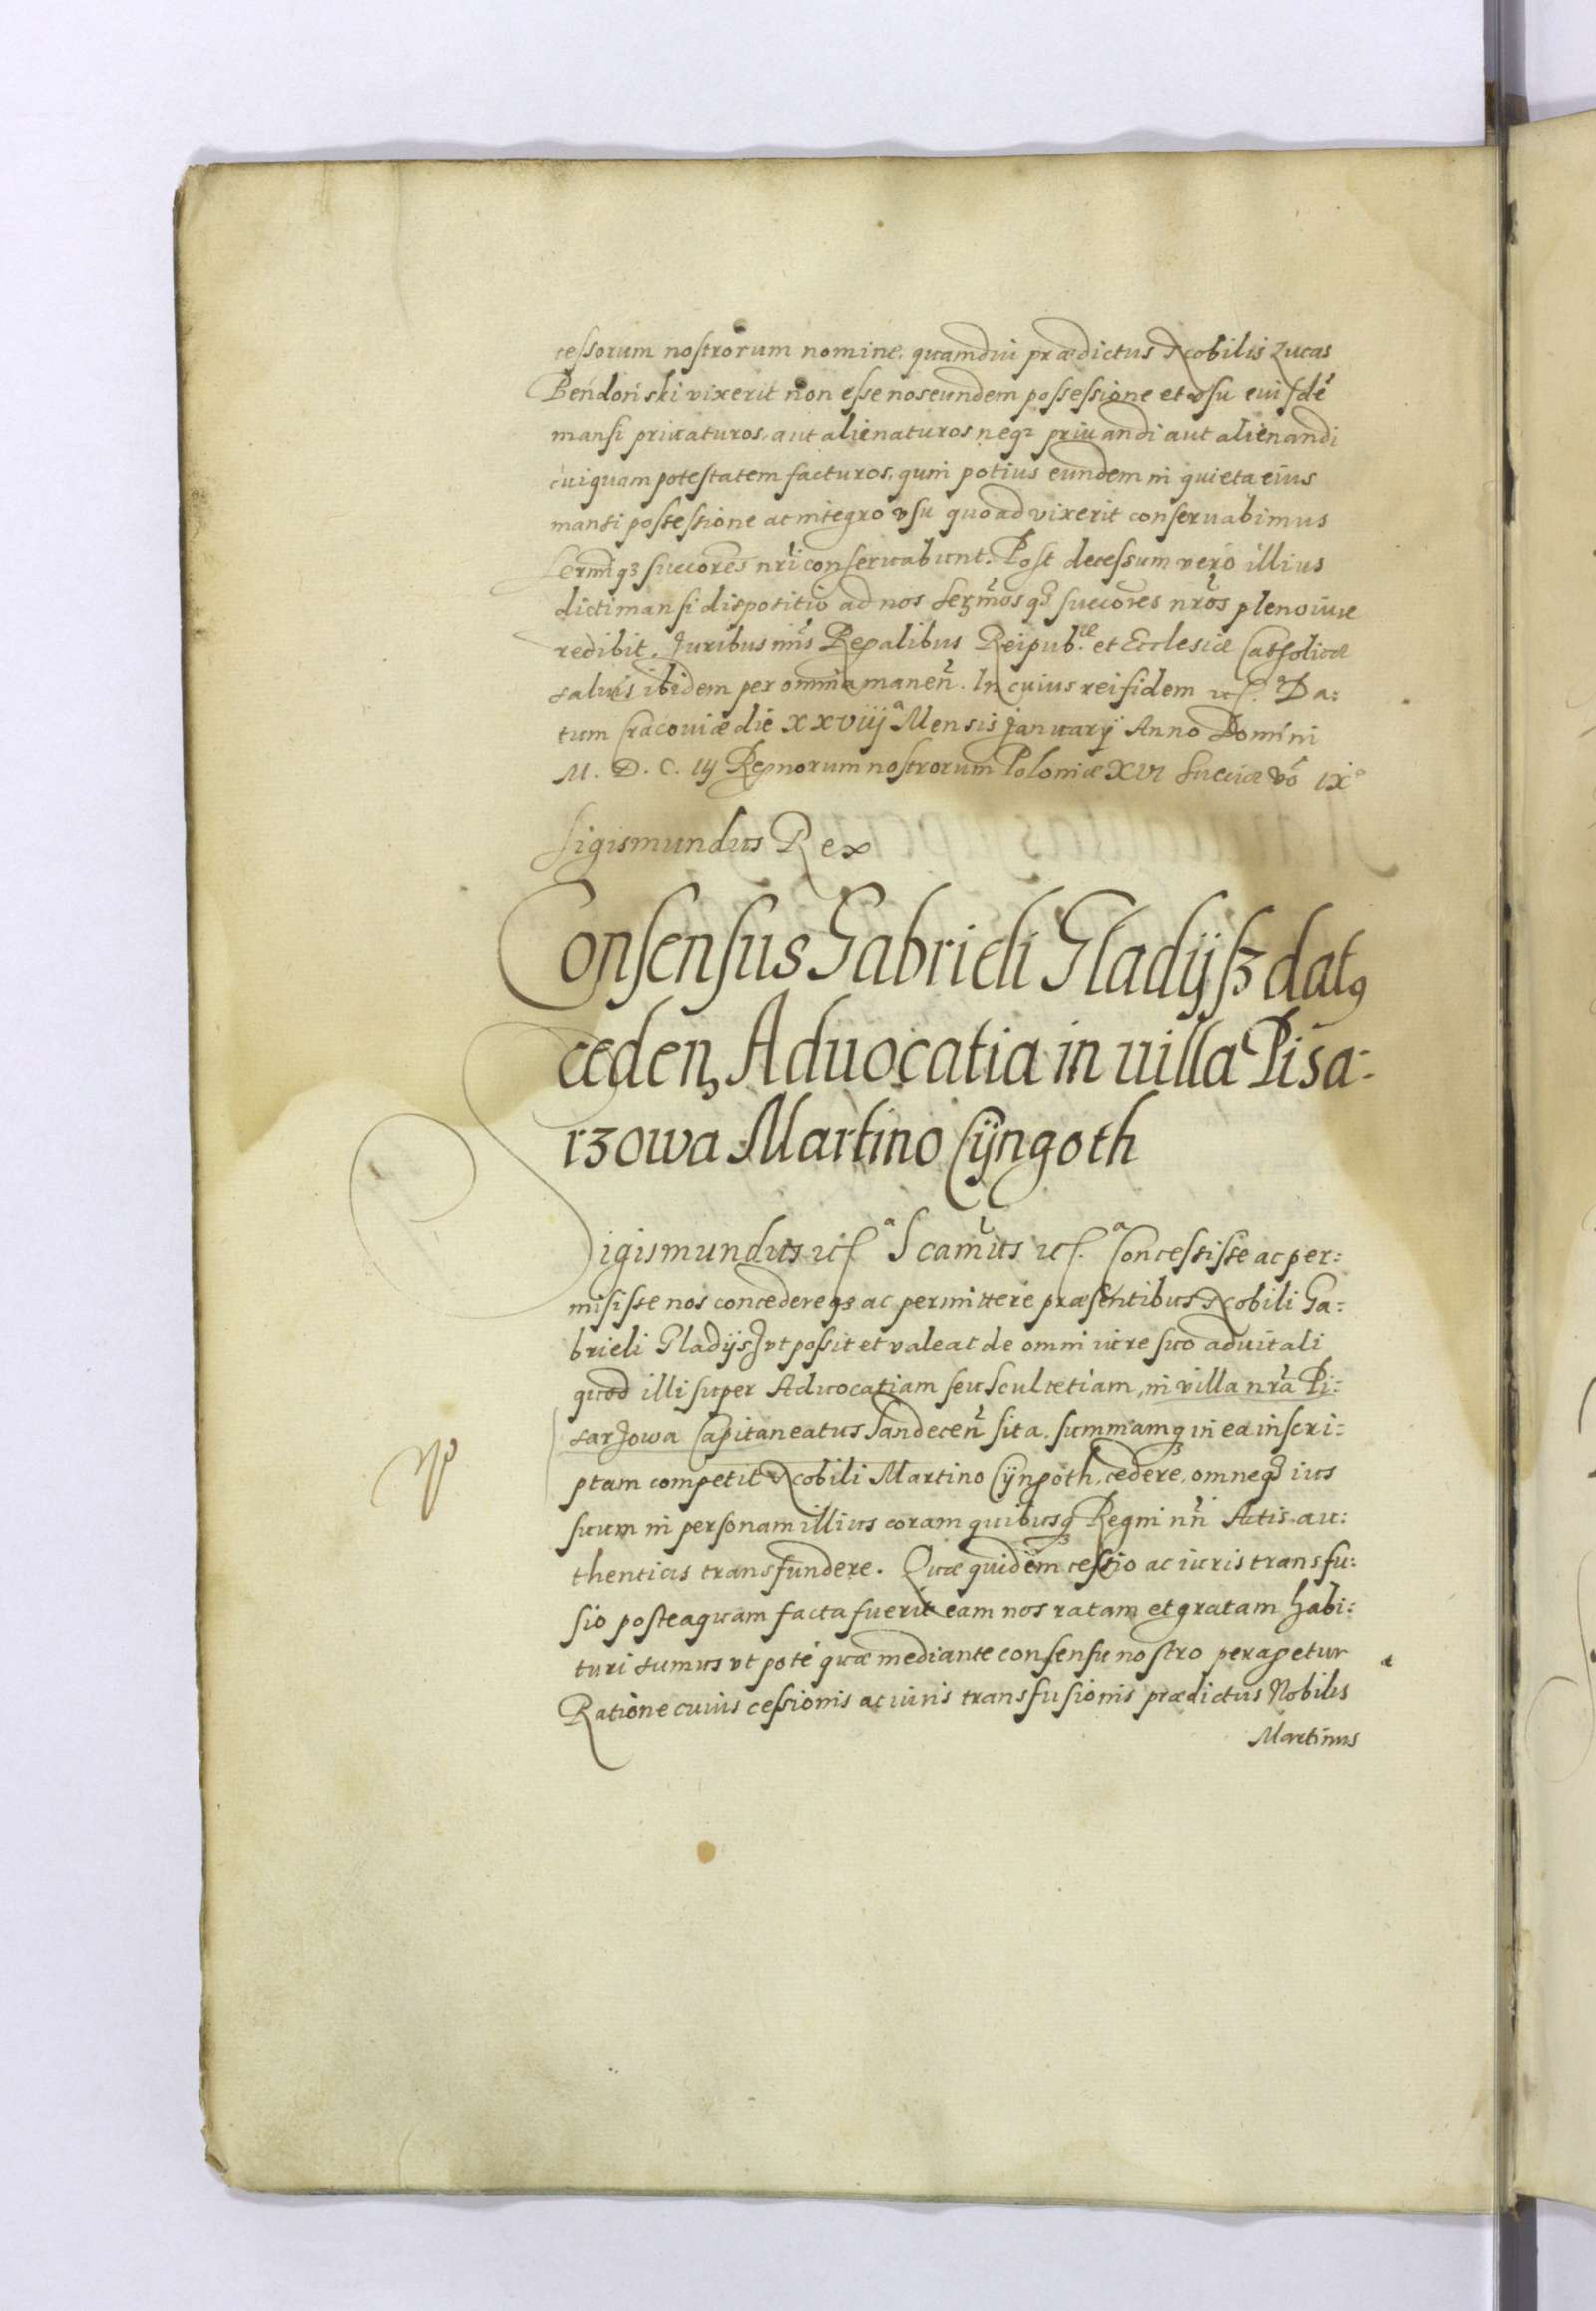 cessorum nostrorum nomine, quamdiu prædictus Nobilis Lucas
Bendonski vixerit non esse nos eundem possessione et vsu eiusdē
mansi priuaturos, aut alienaturos neq₃ priuandi aut alienandi
cuiquam potestatem facturos, quin potius eundem in quieta eius
mansi possessione ac integro vsu quoad vixerit conseruabimus
Sermiq₃ succores nr̃i conseruabunt. Post decessum vero illius
dicti mansi dispositio ad nos Sermosq₃ succores nr̃os pleno iure
redibit. Juribus nr̃is Regalibus Reipub.cæ et Ecclesiæ Catholicæ
saluis ibidem per omnia manen̄. In cuius rei fidem etc.ª Da:
tum Cracouiæ die XXVIIIª Mensis January Anno Domini
M. D. C. IIJ Regnorum nostrorum Poloniæ XVI Sueciæ vō IX°
Sigismundus Rex
Consensus Gabrieli Gladijsz datq
cedeñ Aduocatia in uilla Pisa-
rzowa Martino Cÿngoth
Sigismundus etcª Scamūs etc.ª Concessisse ac per:
misisse nos concedereq₃ ac permittere præsentibus Nobili Ga:
brieli Gladijsz vt possit et valeat de omni iure suo aduitali
quod illi super Aduocatiam seu Scultetiam, in villa nr̃a Pi:
sarzowa Capitaneatus Sandecen̄ sita, summamq₃ in ea inscri:
ptam competit Nobili Martino Cÿngoth, cedere, omneq₃ ius
suum in personam illius coram quibusq₃ Regni nr̃i Actis au:
thenticis transfundere. Quæ quidem cessio ac iuris transfu:
sio posteaquam facta fuerit eam nos ratam et gratam habi:
turi sumus vt pote quæ mediante consensu nostro peragetur
Ratione cuius cessionis ac iuris transfusionis prædictus Nobilis
Martinus